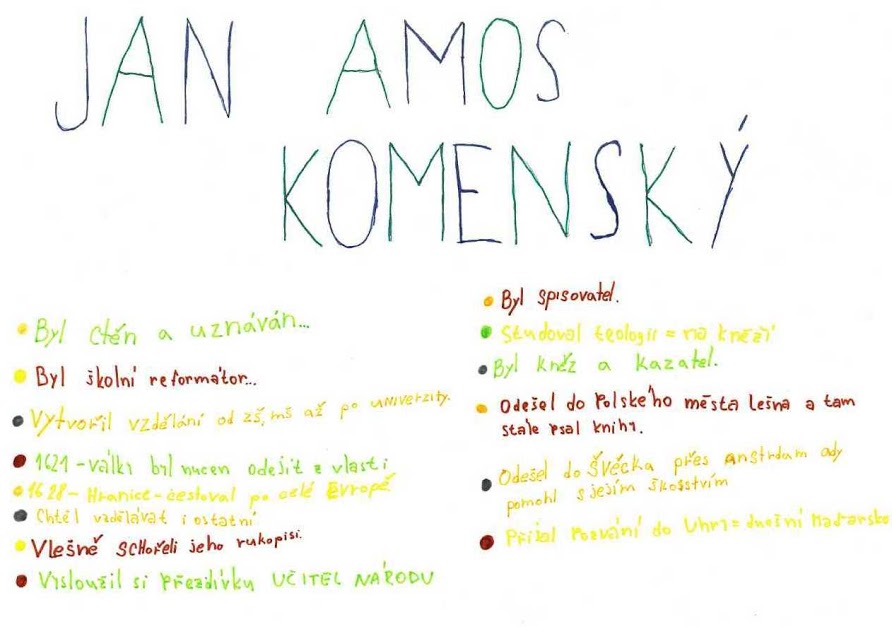 JAN AMOS
KOMENSKÝ
Byl ctěn a uznáván...
Byl školní reformátor...
Vytvořil vzdělání od zš, mš až po univerzity.
1621 - války byl nucen odejít z vlasti
1628 - Hranice - cestoval po celé Evropě
Chtěl vzdělávat i ostatní
Vlešně schořeli jeho rukopisi.
Vysloužil si přezdívku UČITEL NÁRODU
Byl spisovatel.
Studoval teologii = na kněží
Byl kněz a kazatel.
Odešel do Polského města Lešna a tam
stále psal knihy.
Odešel do Švécka přes anstrdam ady
pomohl s jejím školstvím
Přijal pozvání do Uhry = dnešní Maďarsko